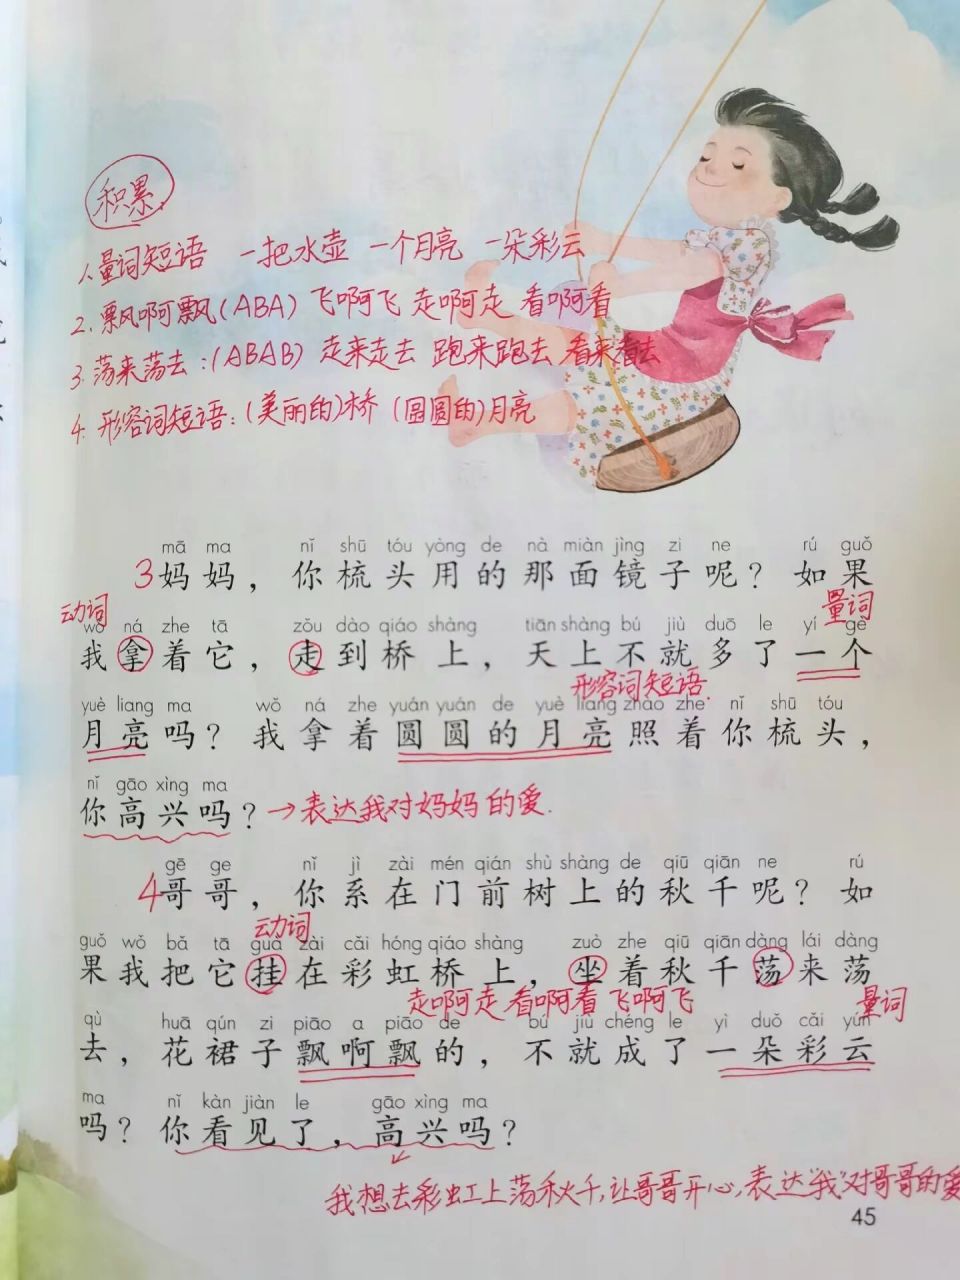 积累
1.量词短语 一把水壶 一个月亮 一朵彩云
2.飘啊飘(ABA) 飞啊飞 走啊走 看啊看
3.荡来荡去:(ABAB) 走来走去 跑来跑去 看来看去
4.形容词短语:(美丽的)桥 (圆圆的)月亮
mā ma nǐ shū tóu yòng de nà miàn jìng zi ne rú guǒ
3妈妈，你梳头用的那面镜子呢？如果
动词 量词
wǒ ná zhe tā zǒu dào qiáo shàng tiān shàng bú jiù duō le yí gè
我拿着它，走到桥上，天上不就多了一个
形容词短语
yuè liang ma wǒ ná zhe yuán yuán de yuè liang zhào zhe nǐ shū tóu
月亮吗？我拿着圆圆的月亮照着你梳头，
nǐ gāo xìng ma
你高兴吗？→表达我对妈妈的爱.
gē ge nǐ jì zài mén qián shù shàng de qiū qiān ne rú
4哥哥，你系在门前树上的秋千呢？如
动词
guǒ wǒ bǎ tā guà zài cǎi hóng qiáo shàng zuò zhe qiū qiān dàng lái dàng
果我把它挂在彩虹桥上，坐着秋千荡来荡
走啊走 看啊看 飞啊飞 量词
qù huā qún zi piāo a piāo de bú jiù chéng le yì duǒ cǎi yún
去，花裙子飘啊飘的，不就成了一朵彩云
ma nǐ kàn jiàn le gāo xìng ma
吗？你看见了，高兴吗？
我想去彩虹上荡秋千,让哥哥开心,表达"我"对哥哥的爱
45